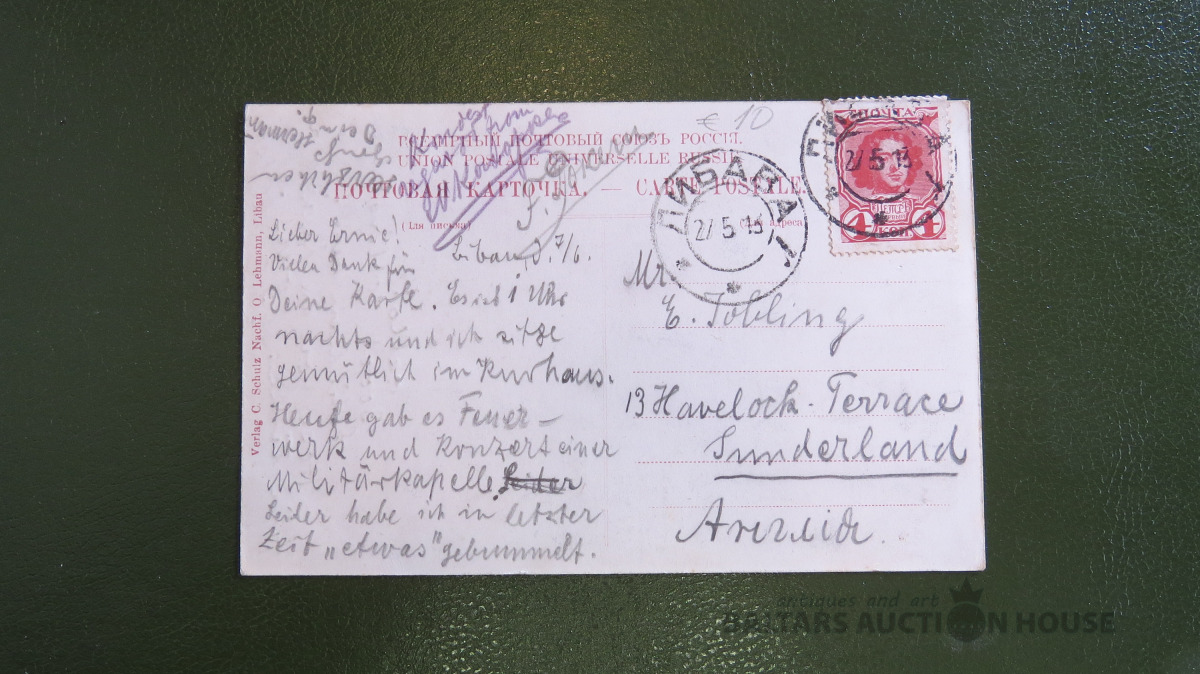 € 10
ВСЕМІРНЫЙ ПОЧТОВЫЙ СОЮЗЪ РОССІЯ.
UNION POSTALE UNIVERSELLE RUSSIE
ПОЧТОВАЯ КАРТОЧКА. — CARTE POSTALE.
(Для письма)
(Для адреса)
Kindest
from
Lieber Ernie!
Libau, d. 7/6.
Vielen Dank für
Deine Karte. Es ist 1 Uhr
nachts und ich sitze
gemütlich im Kurhaus.
Heute gab es Feuer-
werk und Konzert einer
Militärkapelle. Leider
Leider habe ich in letzter
Zeit „etwas" gebummelt.
Dein
Herman
Verlag C. Schulz Nachf. O Lehmann, Libau
ЛИБАВА
27 5 13
ПОЧТА
27 5 13
4 КОП. 4
Mr.
E. Tobling
13 Havelock-Terrace
Sunderland
Англія.
antiques and art
BALTARS AUCTION HOUSE